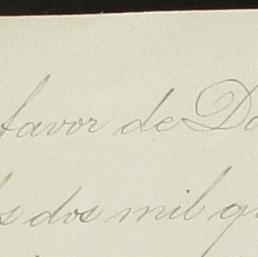 favor de Do
s dos mil qu